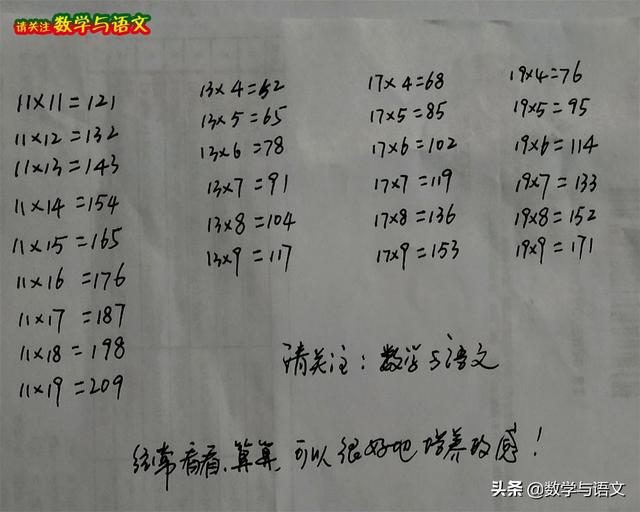 请关注 数学与语文
11×11=121
11×12=132
11×13=143
11×14=154
11×15=165
11×16=176
11×17=187
11×18=198
11×19=209
13×4=52
13×5=65
13×6=78
13×7=91
13×8=104
13×9=117
17×4=68
17×5=85
17×6=102
17×7=119
17×8=136
17×9=153
19×4=76
19×5=95
19×6=114
19×7=133
19×8=152
19×9=171
请关注：数学与语文
经常看看、算算，可以很好地培养数感！
头条 @数学与语文